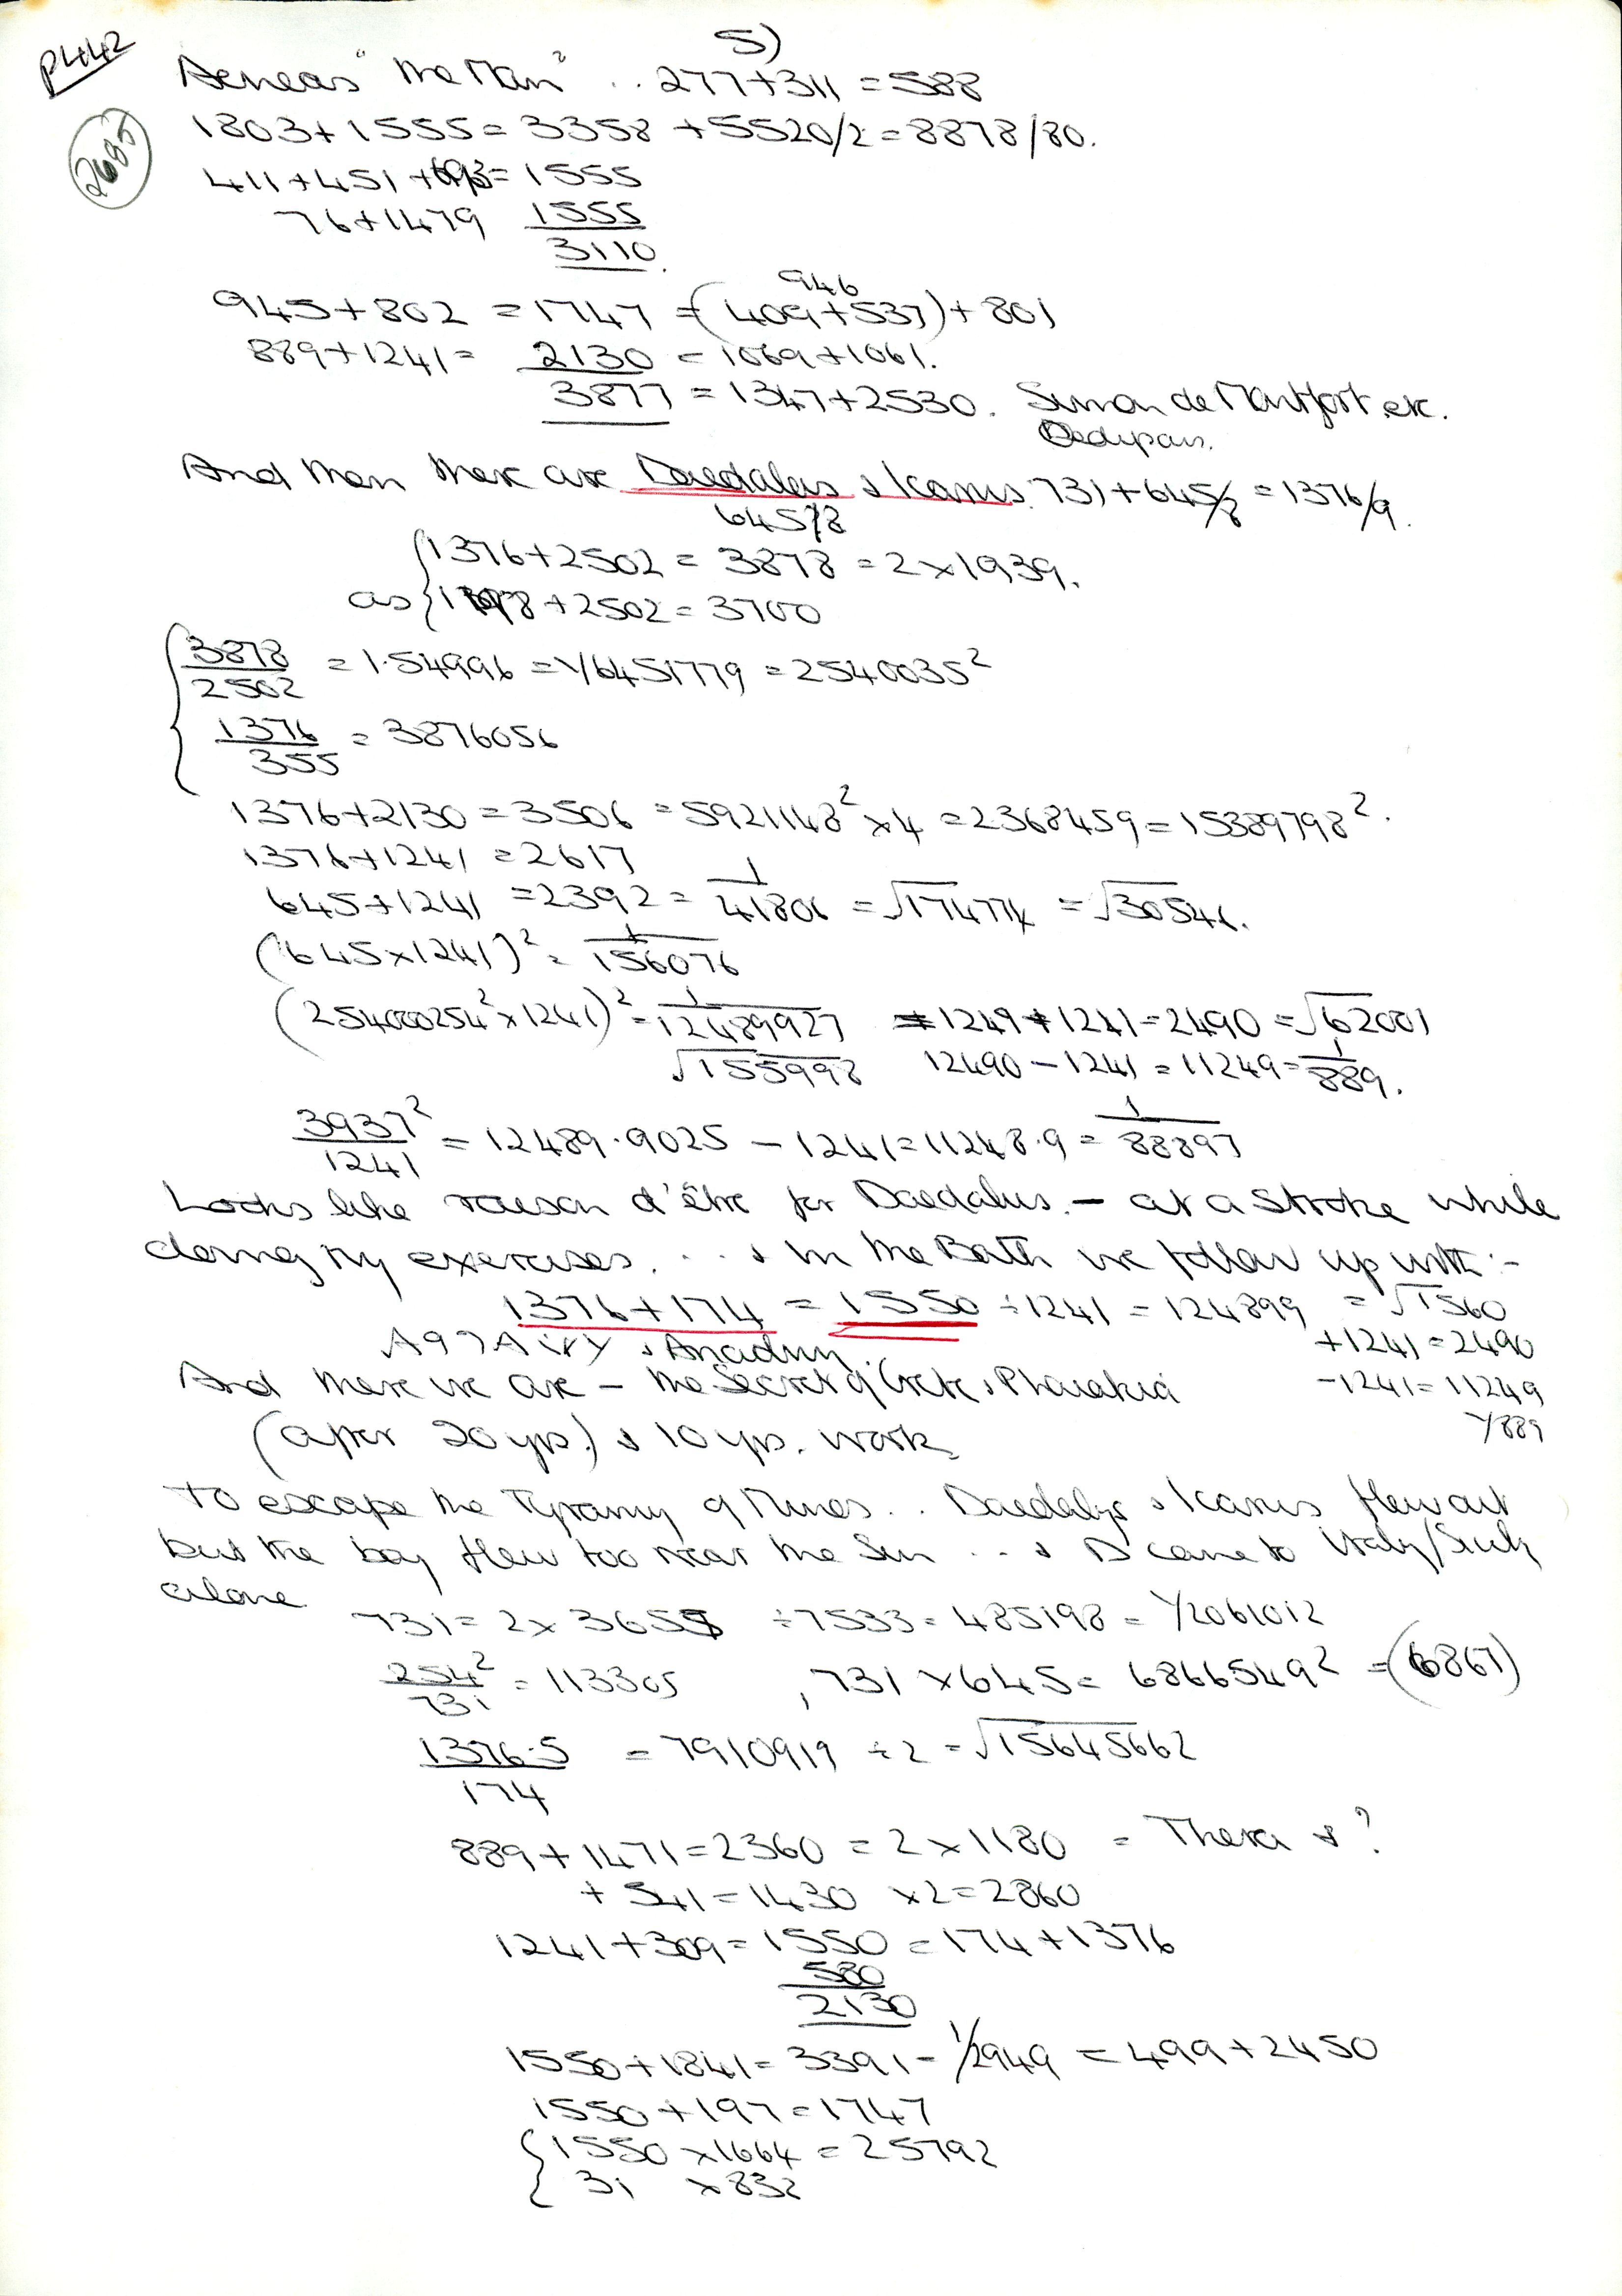 P442
5)
2685
Aeneas "the Man" .. 277+311 = 588
1803+1555= 3358 +5520/2=8878/80.
411+451+693= 1555
76+1479 1555
3110
946
945+802 =1747 =(409+537)+801
889+1241= 2130 = 1069+1061.
3877 = 1347+2530. Simon de Montfort etc.
And then there are Daedalus & Icarus. 731+645/8 =1376/9.
645/8
{1376+2502 = 3878 = 2×1939.
as 1198+2502=3700
3878/2502 =1.54996=1/6451779=2540035²
1376/355 = 3876056
1376+2130=3506 =5921148²×4=2368459=15389798².
1376+1241 =2617
645+1241 =2392= 1/41806 =√17477 =√30546.
(645×1241)²= 1/156076
(254000254²×1241)²=1/12489927 =1249+1241=2490=√62001
√155998 12490-1241=11249=1/889.
3937²/1241 =12489.9025 -1241=11248.9=1/88897
Looks like raison d'être for Daedalus. - at a stroke while
doing my exercises. ... & in the Bath we follow up with:-
1376+174 = 1550 ÷1241=124899 =√1560
& Ariadne. +1241=2490
And there we are - the Secret of Crete & Phaiakia -1241=11249
(after 20 yrs.) & 10 yrs. work 1/889
To escape the Tyranny of Minos.. Daedalus & Icarus flew out
but the boy flew too near the Sun ... & D came to Italy/Sicily
alone
731=2×3655 ÷7533=485198=1/2061012
254²/731 =113305 , 731×645=6866549²=(6867)
1376.5/174 =7910919 ÷2=√15645662
889+1471=2360=2×1180 = Thera & ?
+541=1430 ×2=2860
1241+309=1550=174+1376
580
2130
1550+1841=3391=1/2949 =499+2450
1550+197=1747
{1550×1664=25792
31 ×832